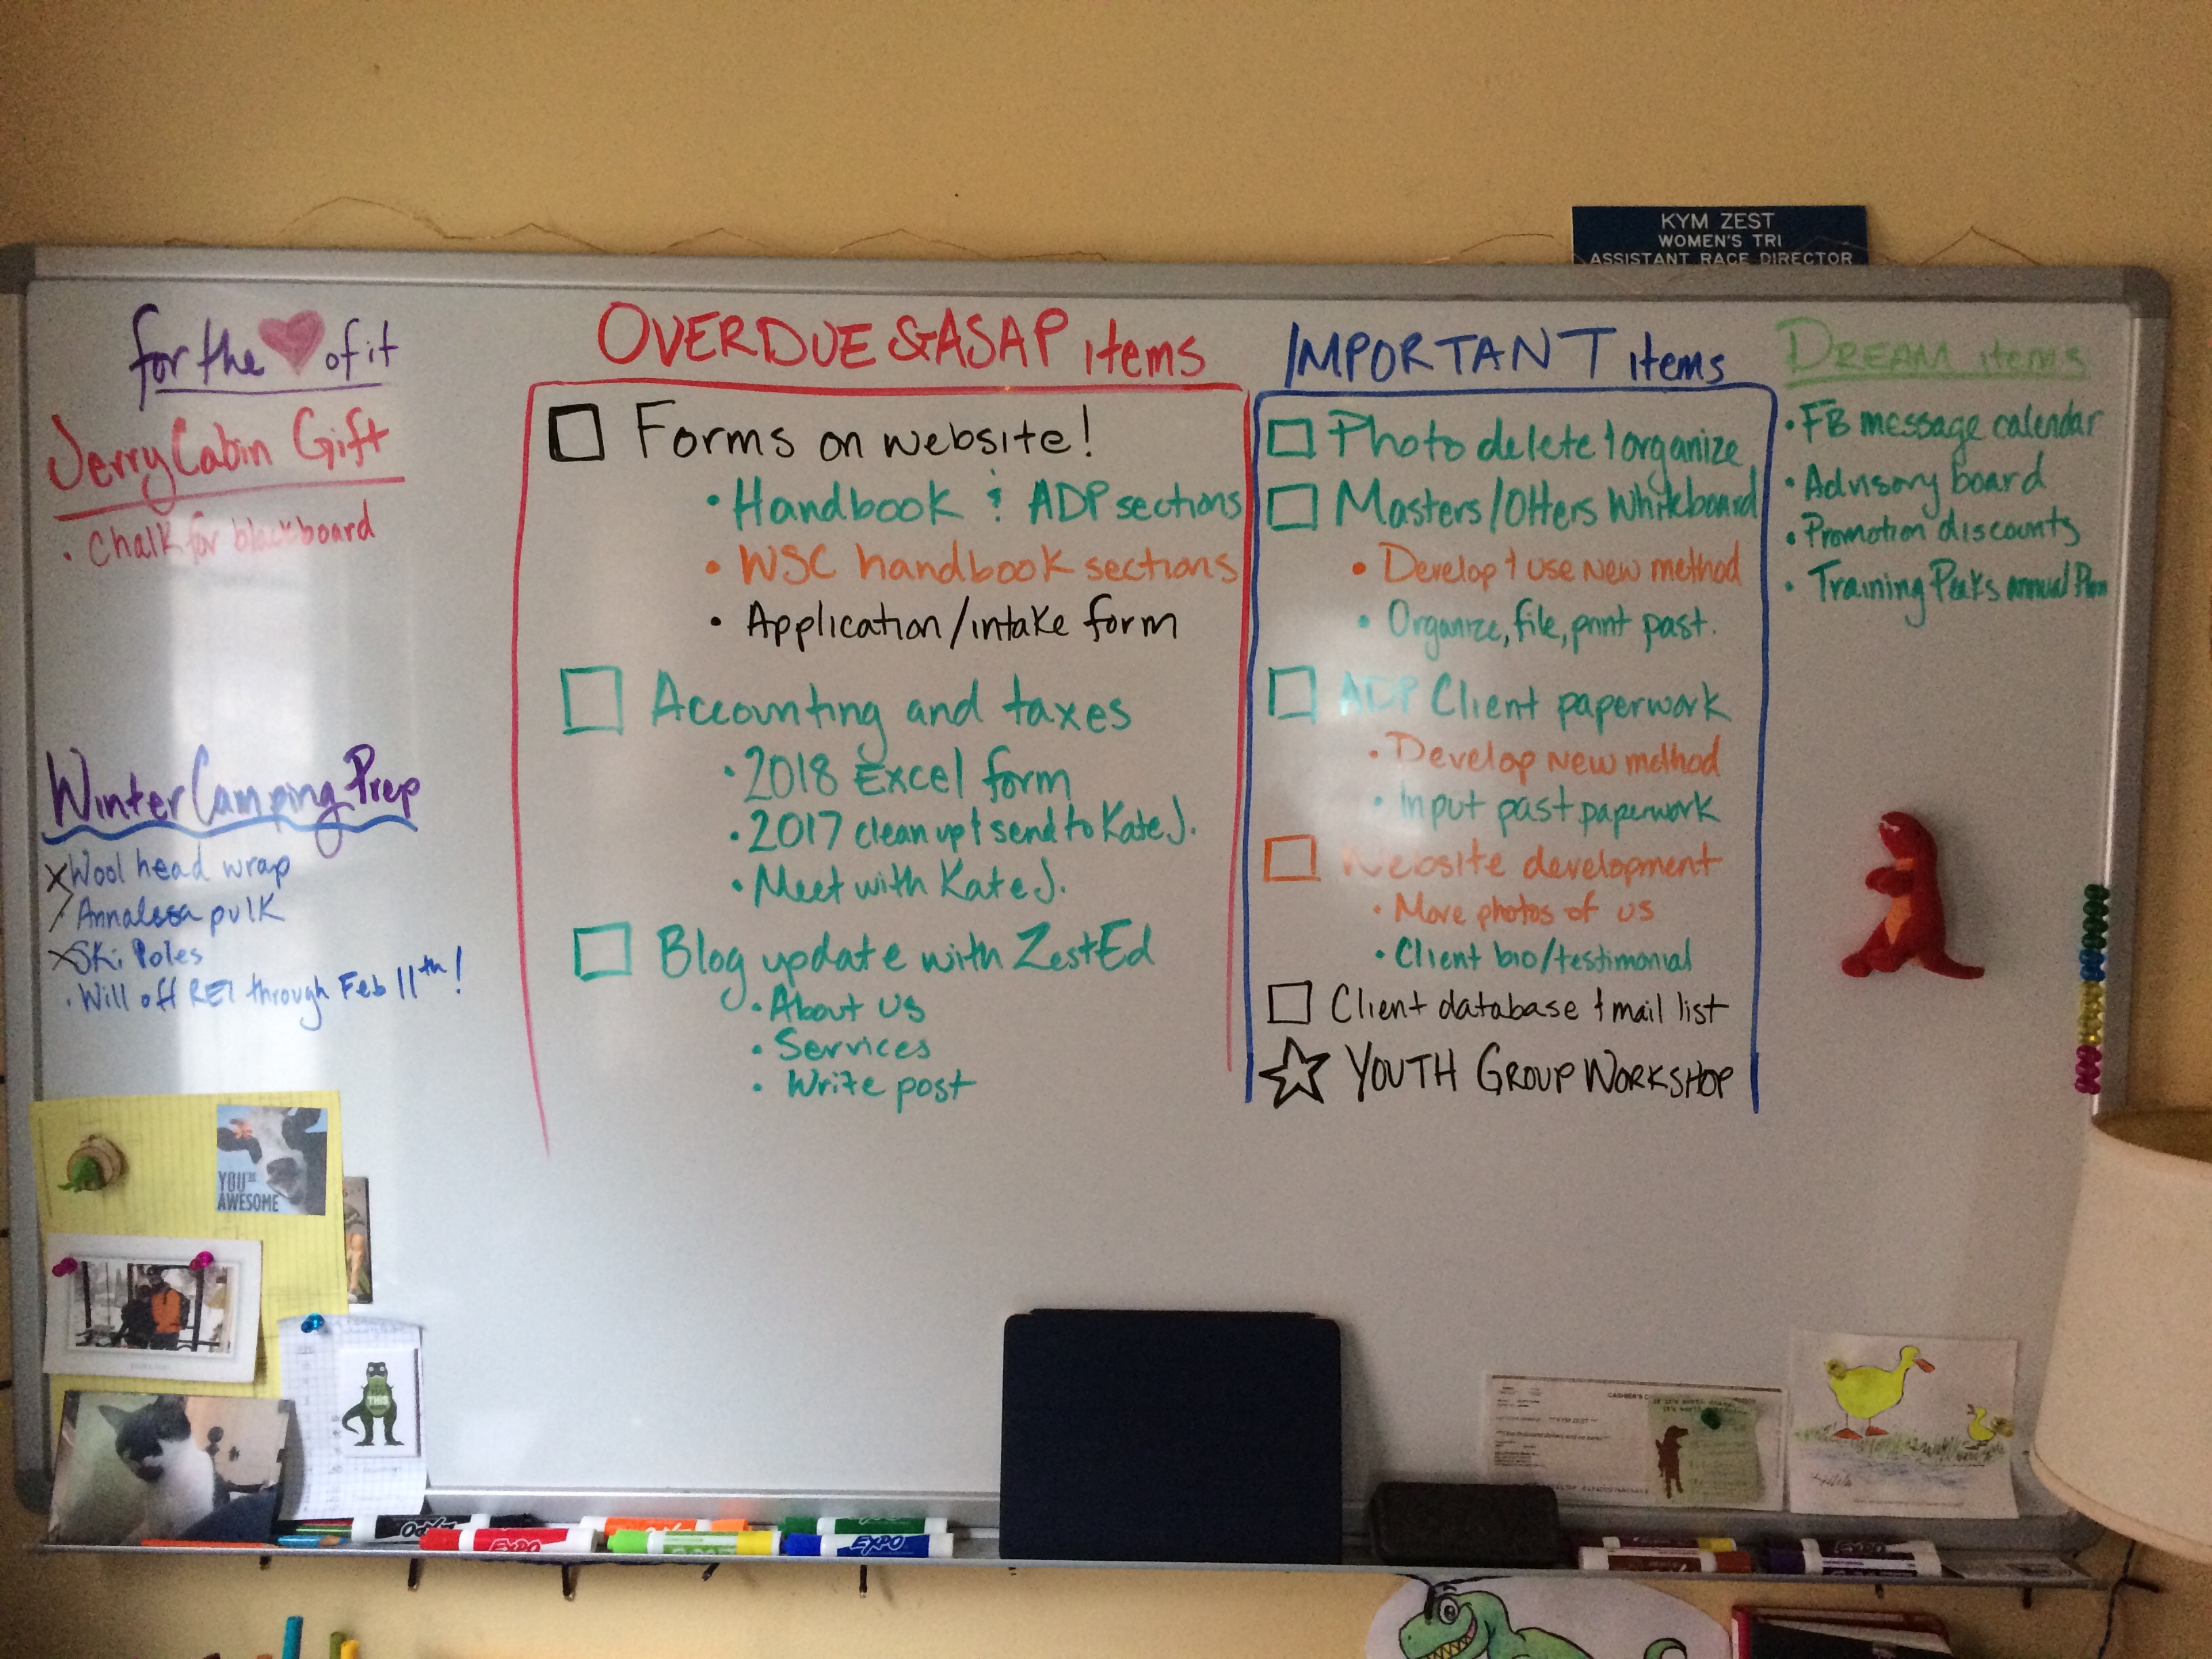 KYM ZEST
WOMEN'S TRI
ASSISTANT RACE DIRECTOR
for the ♥ of it
Jerry Cabin Gift
• Chalk for blackboard
Winter Camping Prep
Wool head wrap
Annalesa pulk
Ski Poles
• Will off REI through Feb 11th!
OVERDUE & ASAP items
Forms on website!
• Handbook & ADP sections
• WSC handbook sections
• Application/intake form
Accounting and taxes
• 2018 Excel form
• 2017 clean up & send to Kate J.
• Meet with Kate J.
Blog update with ZestEd
• About us
• Services
• Write post
IMPORTANT items
Photo delete & organize
Masters/Otters Whiteboard
• Develop & use new method
• Organize, file, print past.
ADP Client paperwork
• Develop new method
• Input past paperwork
Website development
• More photos of us
• Client bio/testimonial
Client database & mail list
☆ YOUTH GROUP WORKSHOP
DREAM items
• FB message calendar
• Advisory board
• Promotion discounts
• Training Peaks annual Plan
YOU'RE
AWESOME
THIS
CASHIER'S
KYM ZEST
EXPO
EXPO